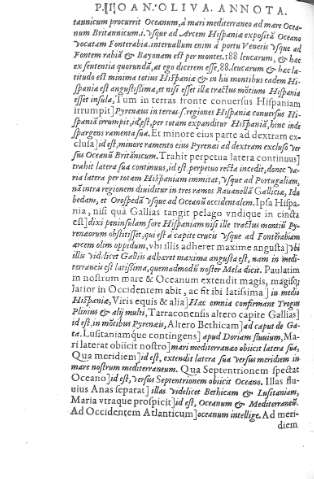 P. I. IOAN. OLIVA. ANNOTA.
tannicum procurrit Oceanum, à mari mediterraneo ad mare Ocea-
num Britannicum. i. vsque ad Artem Hispania expositā Oceano
vocatam Fontrabia. interuallum enim à portu Veneris vsque ad
Fontem rabiā & Bayonam est per mare. 188 leucarum, & hac
ex sententia quorundā, at ego dicerem esse, 88. leucarum & hac la-
titudo est minima totius Hispaniæ & in his montibus eadem His-
pania est angustissima, et nisi esset illa tractus mōtium Hispania
esset insula, Tum in terras fronte conuersus Hispaniam
irrumpit] Pyrenæus in terras. s. regiones Hispania conuersus His-
paniā irrumpit, id est, per totam expanditur Hispaniā, hinc inde
spargens ramenta sua. Et minore eius parte ad dextram ex-
clusa] id est, minore ramento eius Pyrenæi ad dextram excluso ver-
sus Oceanū Britānicum. Trahit perpetua latera continuus]
trahit latera sua continua, id est, perpetuo tractu incedit, donec va-
ria latera per totam Hispaniam immittat, vsque ad Portugaliam,
nā intra regionem diuiditur in tres ramos Rauanollā Gallicia, Idu
bedam, et Orospedā vsque ad Oceanū occidentalem. Ipsa Hispa-
nia, nisi qua Gallias tangit pelago vndique in cincta
est] dixi peninsulam fore Hispaniam nisi ille tractus montiū Py-
renæorum obstitisset, qui est à capite crucis vsque ad Fontērabiam
arcem olim oppidum, vbi illis adheret maxime angusta] vbi
illis videlicet Gallis adhæret maxima angusta est, nam in medi-
terraneis est latissima, quemadmodū noster Mela dicit. Paulatim
in nostrum mare & Oceanum extendit magis, magisq́;
latior in Occidentem abit, ac fit ibi latissima] in medio
Hispaniæ, Viris equis & alia] Hæc omnia confirmant Trogus
Plinius & alij multi, Tarraconensis altero capite Gallias]
id est, in mōtibus Pyrenæis, Altero Bethicam] ad caput de Ga-
ta. Lusitaniamque contingens] apud Doriam fluuium, Ma-
ri laterat obiicit nostro] mari mediterraneo obiicit latera sua,
Qua meridiem] id est, extendit latera sua versus meridiem in
mare nostrum mediterraneum. Qua Septentrionem spectat
Oceano] id est, versus Septentrionem obiicit Oceano. Illas flu-
uius Anas separat] illas videlicet Bethicam & Lusitaniam,
Maria vtraque prospicit] id est, Oceanum & Mediterraneū.
Ad Occidentem Atlanticum] oceanum intellige. Ad meri-
diem